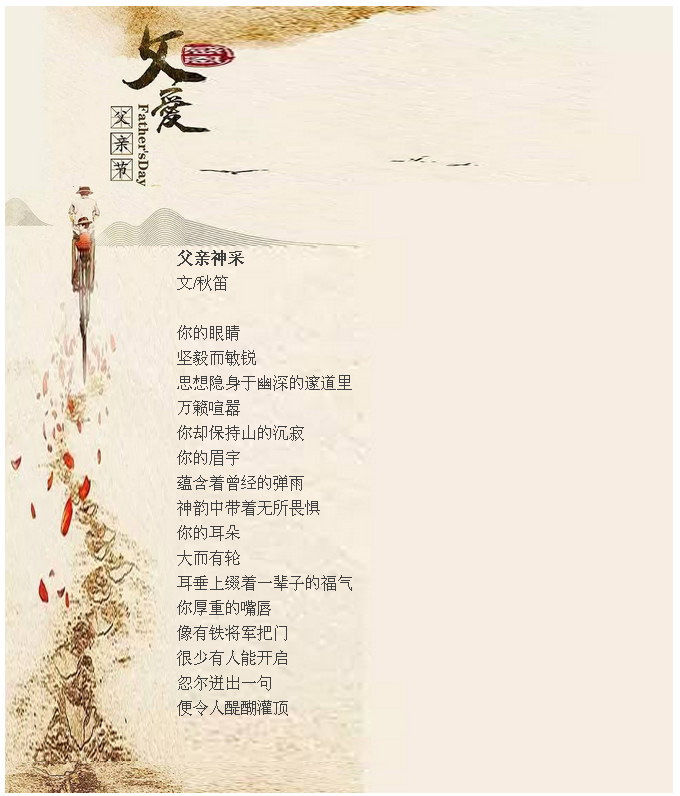 父爱
感恩
父亲节
Father'sDay
父亲神采
文/秋笛
你的眼睛
坚毅而敏锐
思想隐身于幽深的邃道里
万籁喧嚣
你却保持山的沉寂
你的眉宇
蕴含着曾经的弹雨
神韵中带着无所畏惧
你的耳朵
大而有轮
耳垂上缀着一辈子的福气
你厚重的嘴唇
像有铁将军把门
很少有人能开启
忽尔迸出一句
便令人醍醐灌顶